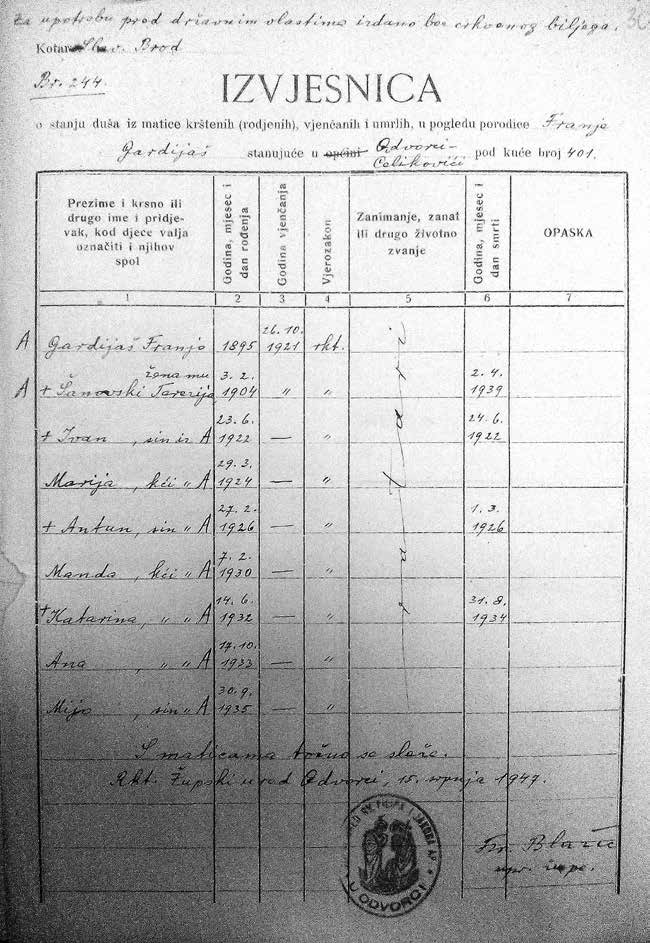 Za upotrebu pred državnim vlastima izdano bez crkvenog biljega.
Kotar Slav. Brod
Br. 244.
IZVJESNICA
o stanju duša iz matice krštenih (rodjenih), vjenčanih i umrlih, u pogledu porodice Franje
Gardijaš stanujuće u općini Odvorci-
Čelikovići pod kuće broj 401.
Prezime i krsno ili drugo ime i pridjevak, kod djece valja označiti i njihov spol
Godina, mjesec i dan rođenja
Godina vjenčanja
Vjerozakon
Zanimanje, zanat ili drugo životno zvanje
Godina, mjesec i dan smrti
OPASKA
1 2 3 4 5 6 7
A Gardijaš Franjo 1895 26.10. 1921 rkt.
žena mu
A + Šanovski Terezija 3. 2. 1904 " " 2. 4. 1939
+ Ivan, sin iz A 23. 6. 1922 — " 24. 6. 1922
Marija, kći " A 29. 3. 1924 — "
+ Antun, sin " A 27. 2. 1926 — " 1. 3. 1926
Manda, kći " A 7. 2. 1930 — "
+ Katarina, " " A 14. 6. 1932 — " 31. 8. 1934
Ana, " " A 17. 10. 1933 — "
Mijo, sin " A 30. 9. 1935 — "
ratari
S maticama točno se slaže.
Rkt. Župski ured Odvorci, 15. srpnja 1947.
FILIPA I JAKOBA AP.
U ODVORCI
Fr. Blazic
upr. župe.